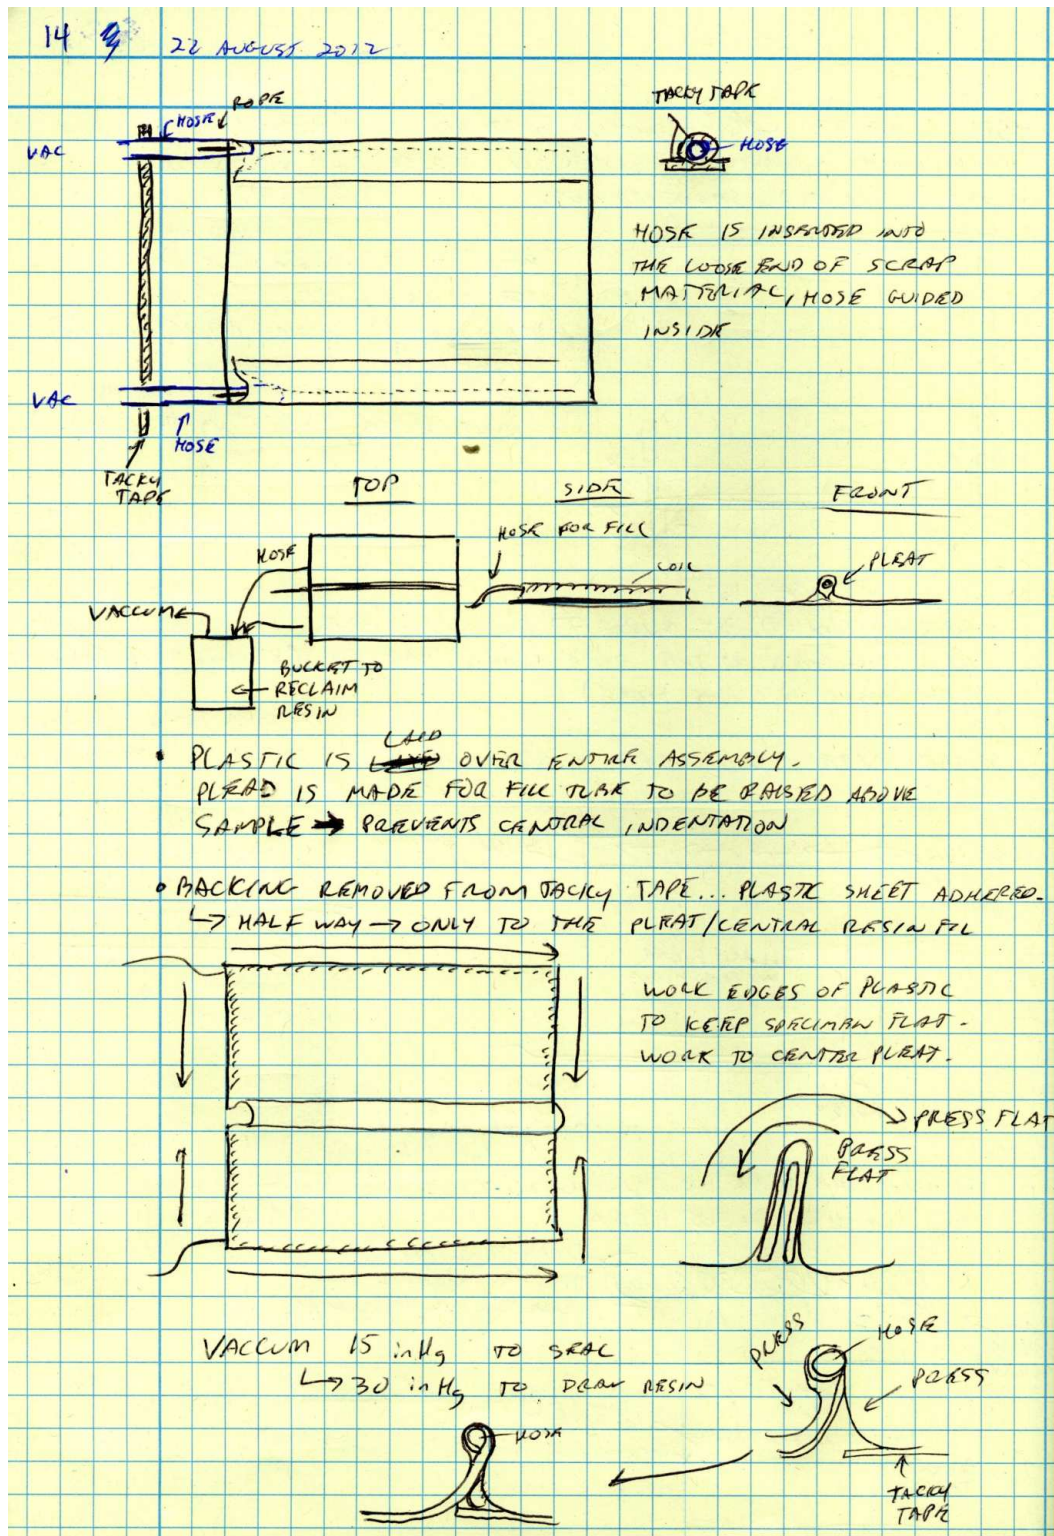 14
22 AUGUST 2012
ROPE
HOSE
VAC
TACKY TAPE
HOSE
HOSE IS INSERTED INTO
THE LOOSE END OF SCRAP
MATERIAL, HOSE GUIDED
INSIDE
VAC
HOSE
TACKY
TAPE
TOP
SIDE
FRONT
HOSE
HOSE FOR FILL
COIL
PLEAT
VACCUME
BUCKET TO
RECLAIM
RESIN
LAID
• PLASTIC IS OVER ENTIRE ASSEMBLY.
PLEAD IS MADE FOR FILL TUBE TO BE RAISED ABOVE
SAMPLE → PREVENTS CENTRAL INDENTATION
• BACKING REMOVED FROM TACKY TAPE... PLASTIC SHEET ADHERED.
↳ HALF WAY → ONLY TO THE PLEAT/CENTRAL RESIN FILL
WORK EDGES OF PLASTIC
TO KEEP SPECIMEN FLAT.
WORK TO CENTER PLEAT.
PRESS FLAT
PRESS
FLAT
VACCUM 15 inHg TO SEAL
↳ 30 inHg TO DRAW RESIN
PRESS
HOSE
PRESS
HOSE
TACKY
TAPE